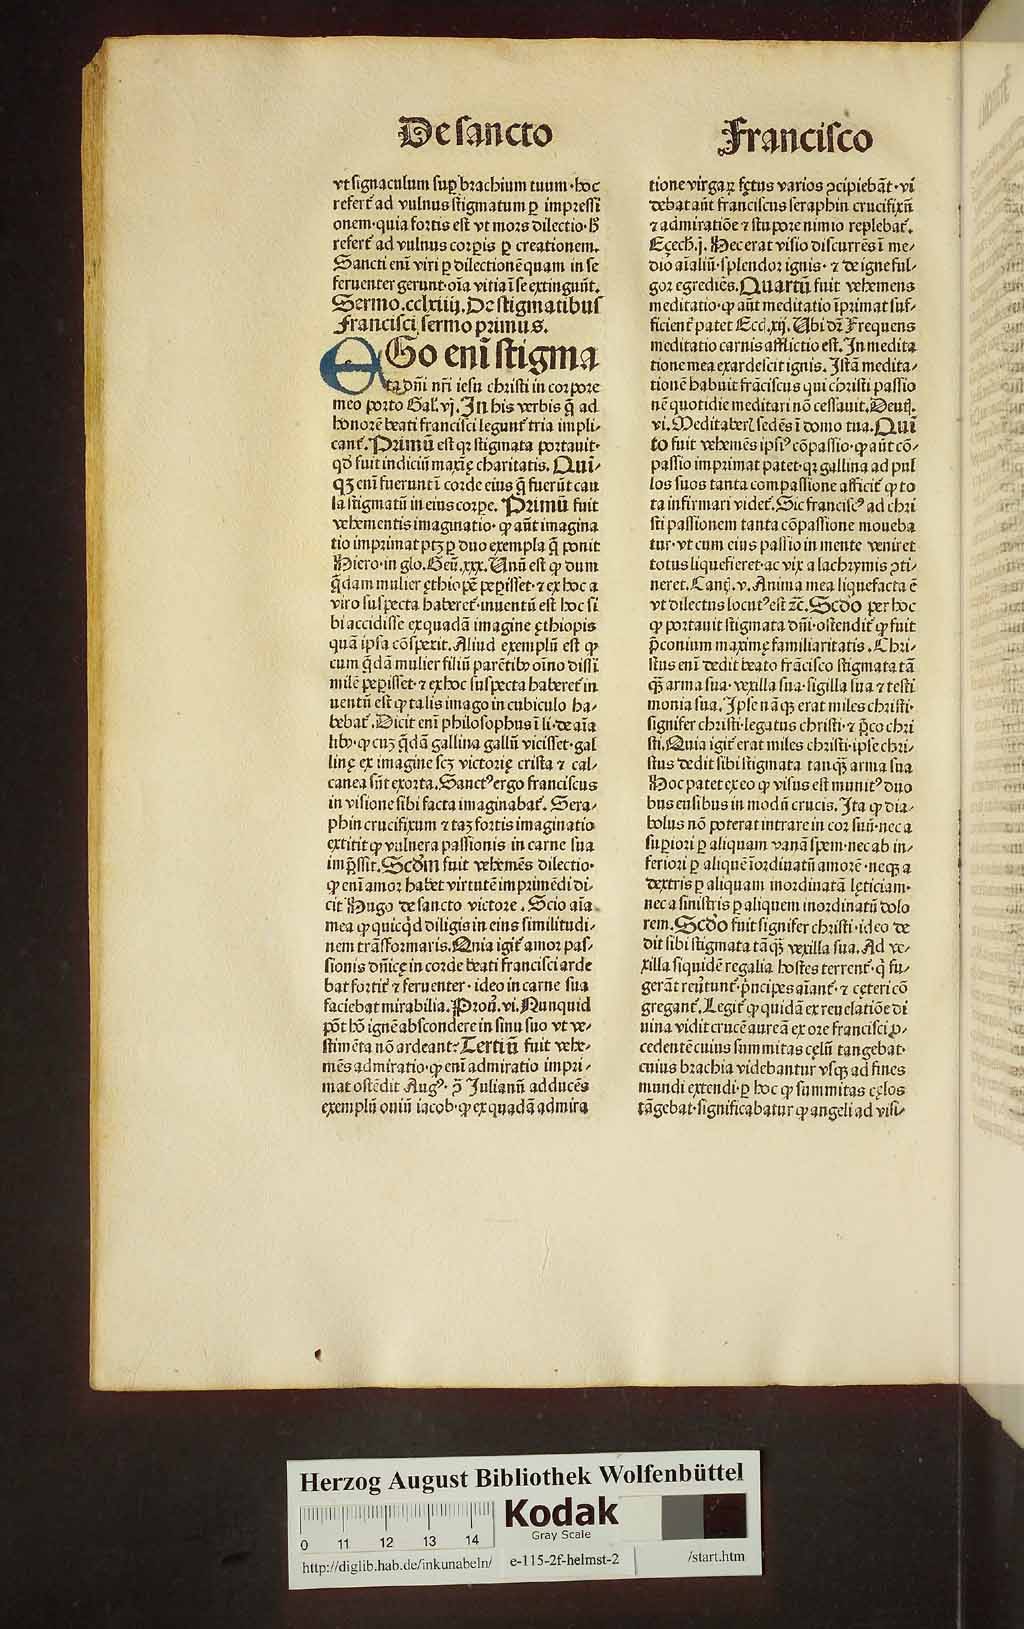 De sancto
Francisco
vt signaculum sup̱ brachium tuum·hoc
refert̉ ad vulnus stigmatum ꝑ impressi
onem·quia fortis est vt mors dilectio·h̉
refert̉ ad vulnus corꝑis ꝑ creationem.
Sancti enī viri ꝑ dilectionē quam in se
feruenter gerunt·oīa vitia ī se extingunt̉.
Sermo.cclxiiij.De stigmatibus
Francisci sermo primus.
EGo enī stigma
ta dn̄i nr̄i iesu christi in corpore
meo porto Gal̉.vj.In his verbis q̄ ad
honorē beati francisci legunt̉ tria impli-
cant̉.Primū est qꝛ stigmata portauit·
qd̉ fuit indiciū maxīe charitatis.Quī-
qꝫ enī fuerunt ī corde eius q̄ fuerūt cau
la stigmatū in eius corꝑe.Primū fuit
vehementis imaginatio·ꝙ aūt imagina
tio imprimat ptꝫ ꝑ duo exempla q̄ ponit
Hiero·in glo.Gen̄.xxx.Vnū est ꝙ dum
q̄dam mulier ęthiopē peꝑisset·⁊ ex hoc a
viro suspecta haberet̉·inuentū est hoc si
bi accidisse ex quadā imagine ęthiopis
quā ipsa cōspexit.Aliud exemplū est ꝙ
cum q̄dā mulier filiū parētibꝰ oīno dissi
milē peꝑisset·⁊ ex hoc suspecta haberet̉ in
uentū est ꝙ talis imago in cubiculo ha-
bebat̉.Dicit enī philosophus ī li·de aīa
libꝰ·ꝙ cuꝫ q̄dā gallina gallū vicisset·gal
linę ex imagine scꝫ victorię crista ⁊ cal-
canea sūt exorta.Sanctꝰ ergo franciscus
in visione sibi facta imaginabat̉.Sera-
phin crucifixum ⁊ taꝫ fortis imaginatio
extitit ꝙ vulnera passionis in carne sua
imp̄ssit.Scd̄m fuit vehemēs dilectio·
ꝙ enī amor habet virtutē imprimēdi di-
cit Hugo de sancto victore.Scio aīa
mea ꝙ quicq̉d diligis in eius similitudi-
nem trāsformaris.Quia igit̉ amor pas-
sionis dn̄icę in corde beati francisci arde
bat fortit̉ ⁊ feruenter·ideo in carne sua
faciebat mirabilia.Proủ.vi.Nunquid
pōt hō ignē abscondere in sinu suo vt ve-
stimēta nō ardeant·Tertiū fuit vehe-
mēs admiratio·ꝙ enī admiratio impri-
mat ostēdit Augꝰ· ꝯ̄ Julianū adducēs
exemplū oniū iacob·ꝙ ex quadā admira
tione virgaꝝ fętus varios ꝯcipiebāt·vi
debat aūt franciscus seraphin crucifixū
⁊ admiratiōe ⁊ stupore nimio replebat̉.
Eçech̉.j.Hec erat visio discurrēs ī me-
dio aīaliū·splendor ignis·⁊ de igne ful-
gor egrediēs.Quartū fuit vehemens
meditatio·ꝙ aūt meditatio īprimat suf-
ficient̉ patet Eccl̉.xij.Vbi dr̄ Frequens
meditatio carnis afflictio est.In medita
tione mea exardescit ignis.Istā medita-
tionē habuit frāciscus qui christi passio
nē quotidie meditari nō cessauit.Deuṭ.
vi.Meditaber̉ sedēs ī domo tua.Quī
to fuit vehemēs ipsiꝰ cōpassio·ꝙ aūt cō-
passio imprimat patet·qꝛ gallina ad pul
los suos tanta compassione afficit̉ ꝙ to
ta infirmari videt̉.Sic franciscꝰ ad chri
sti passionem tanta cōpassione moueba
tur·vt cum eius passio in mente veniret
totus liquefieret·ac vix a lachrymis ꝯti-
neret.Canṭ̉.v.Anima mea liquefacta ē
vt dilectus locutꝰ est ⁊c̄.Scd̄o per hoc
ꝙ portauit stigmata dn̄i·ostendit̉ ꝙ fuit
p̄conium maximę familiaritatis.Chri-
stus enī dedit beato frācisco stigmata tā
qꝫ̄ arma sua·vexilla sua·sigilla sua ⁊ testi
monia sua.Ipse nāqꝫ erat miles christi·
signifer christi·legatus christi·⁊ p̄co chri
sti.Quia igit̉ erat miles christi·ipse chri-
stus dedit sibi stigmata tanqꝫ̄ arma sua
Hoc patet ex eo ꝙ visus est munitꝰ duo
bus ensibus in modū crucis.Ita ꝙ dia-
bolus nō poterat intrare in cor suū·nec a
suꝑiori ꝑ aliquam vanā spem·nec ab in-
feriori ꝑ aliquē īordinatū amorē·neqꝫ a
dextris ꝑ aliquam inordinatā lęticiam·
nec a sinistris ꝑ aliquem inordinatū dolo
rem.Scd̄o fuit signifer christi·ideo de
dit sibi stigmata tāqꝫ̄ vexilla sua.Ad ve-
xilla siquidē regalia hostes terrent̉·q̉ fu-
gerāt reu̓tunt̉·p̉ncipes aīant̉·⁊ cęteri cō
gregant̉.Legit̉ ꝙ quidā ex reuelatiōe di
uina vidit crucē aureā ex ore francisci ꝓ-
cedentē cuius summitas cęlū tangebat·
cuius brachia videbantur vsqꝫ ad fines
mundi extendi·ꝑ hoc ꝙ summitas cęlos
tāgebat·significabatur ꝙ angeli ad visi-
Herzog August Bibliothek Wolfenbüttel
Kodak
Gray Scale
0 11 12 13 14
http://diglib.hab.de/inkunabeln/ e-115-2f-helmst-2 /start.htm